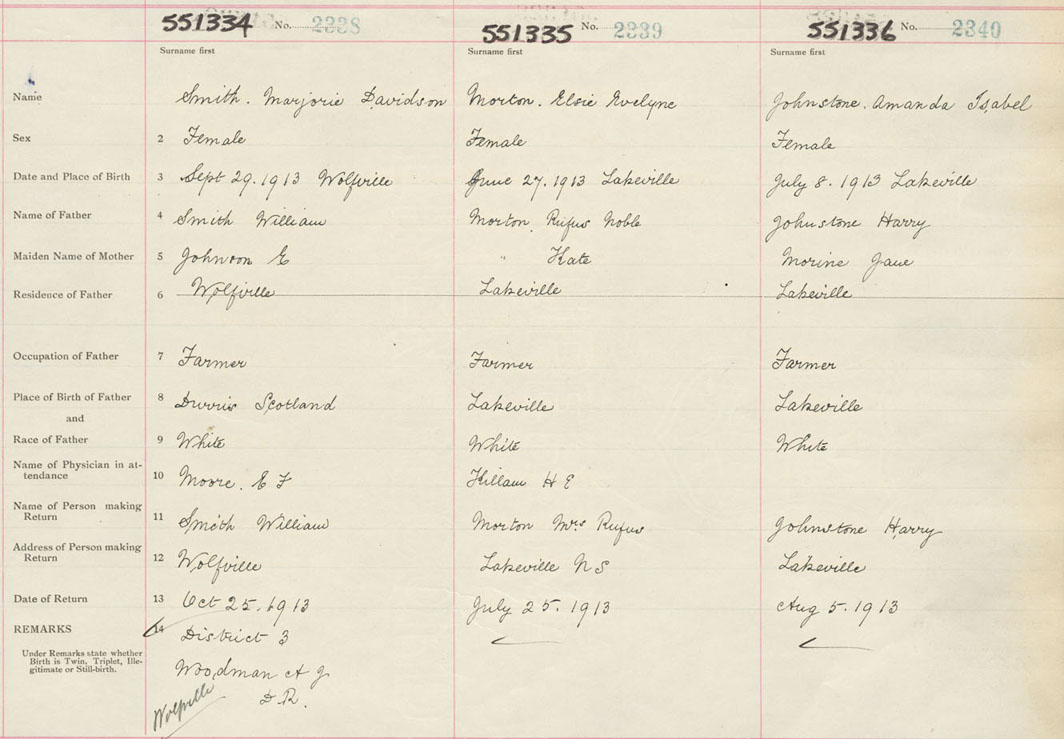 551334 No. 2338 551335 No. 2339 551336 No. 2340
Surname first Surname first Surname first
Name Smith. Marjorie Davidson Morton. Elsie Evelyne Johnstone. Amanda Isabel
Sex 2 Female Female Female
Date and Place of Birth 3 Sept 29. 1913 Wolfville June 27. 1913 Lakeville July 8. 1913 Lakeville
Name of Father 4 Smith William Morton, Rufus Noble Johnstone Harry
Maiden Name of Mother 5 Johnson E " Kate Morine Jane
Residence of Father 6 Wolfville Lakeville Lakeville
Occupation of Father 7 Farmer Farmer Farmer
Place of Birth of Father 8 Durris Scotland Lakeville Lakeville
and
Race of Father 9 White White White
Name of Physician in at-
tendance 10 Moore. E F Killam H E
Name of Person making
Return 11 Smith William Morton Mrs Rufus Johnstone Harry
Address of Person making
Return 12 Wolfville Lakeville N S Lakeville
Date of Return 13 Oct 25. 1913 July 25. 1913 Aug 5. 1913
REMARKS 14 District 3
Under Remarks state whether
Birth is Twin, Triplet, Ille-
gitimate or Still-birth.
Woodman A J
D.R.
Wolfville